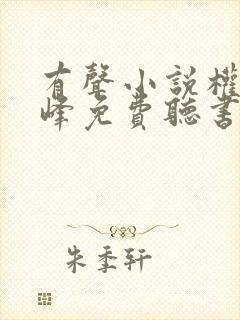 有聲小說權
峰免費聽書
朱季軒